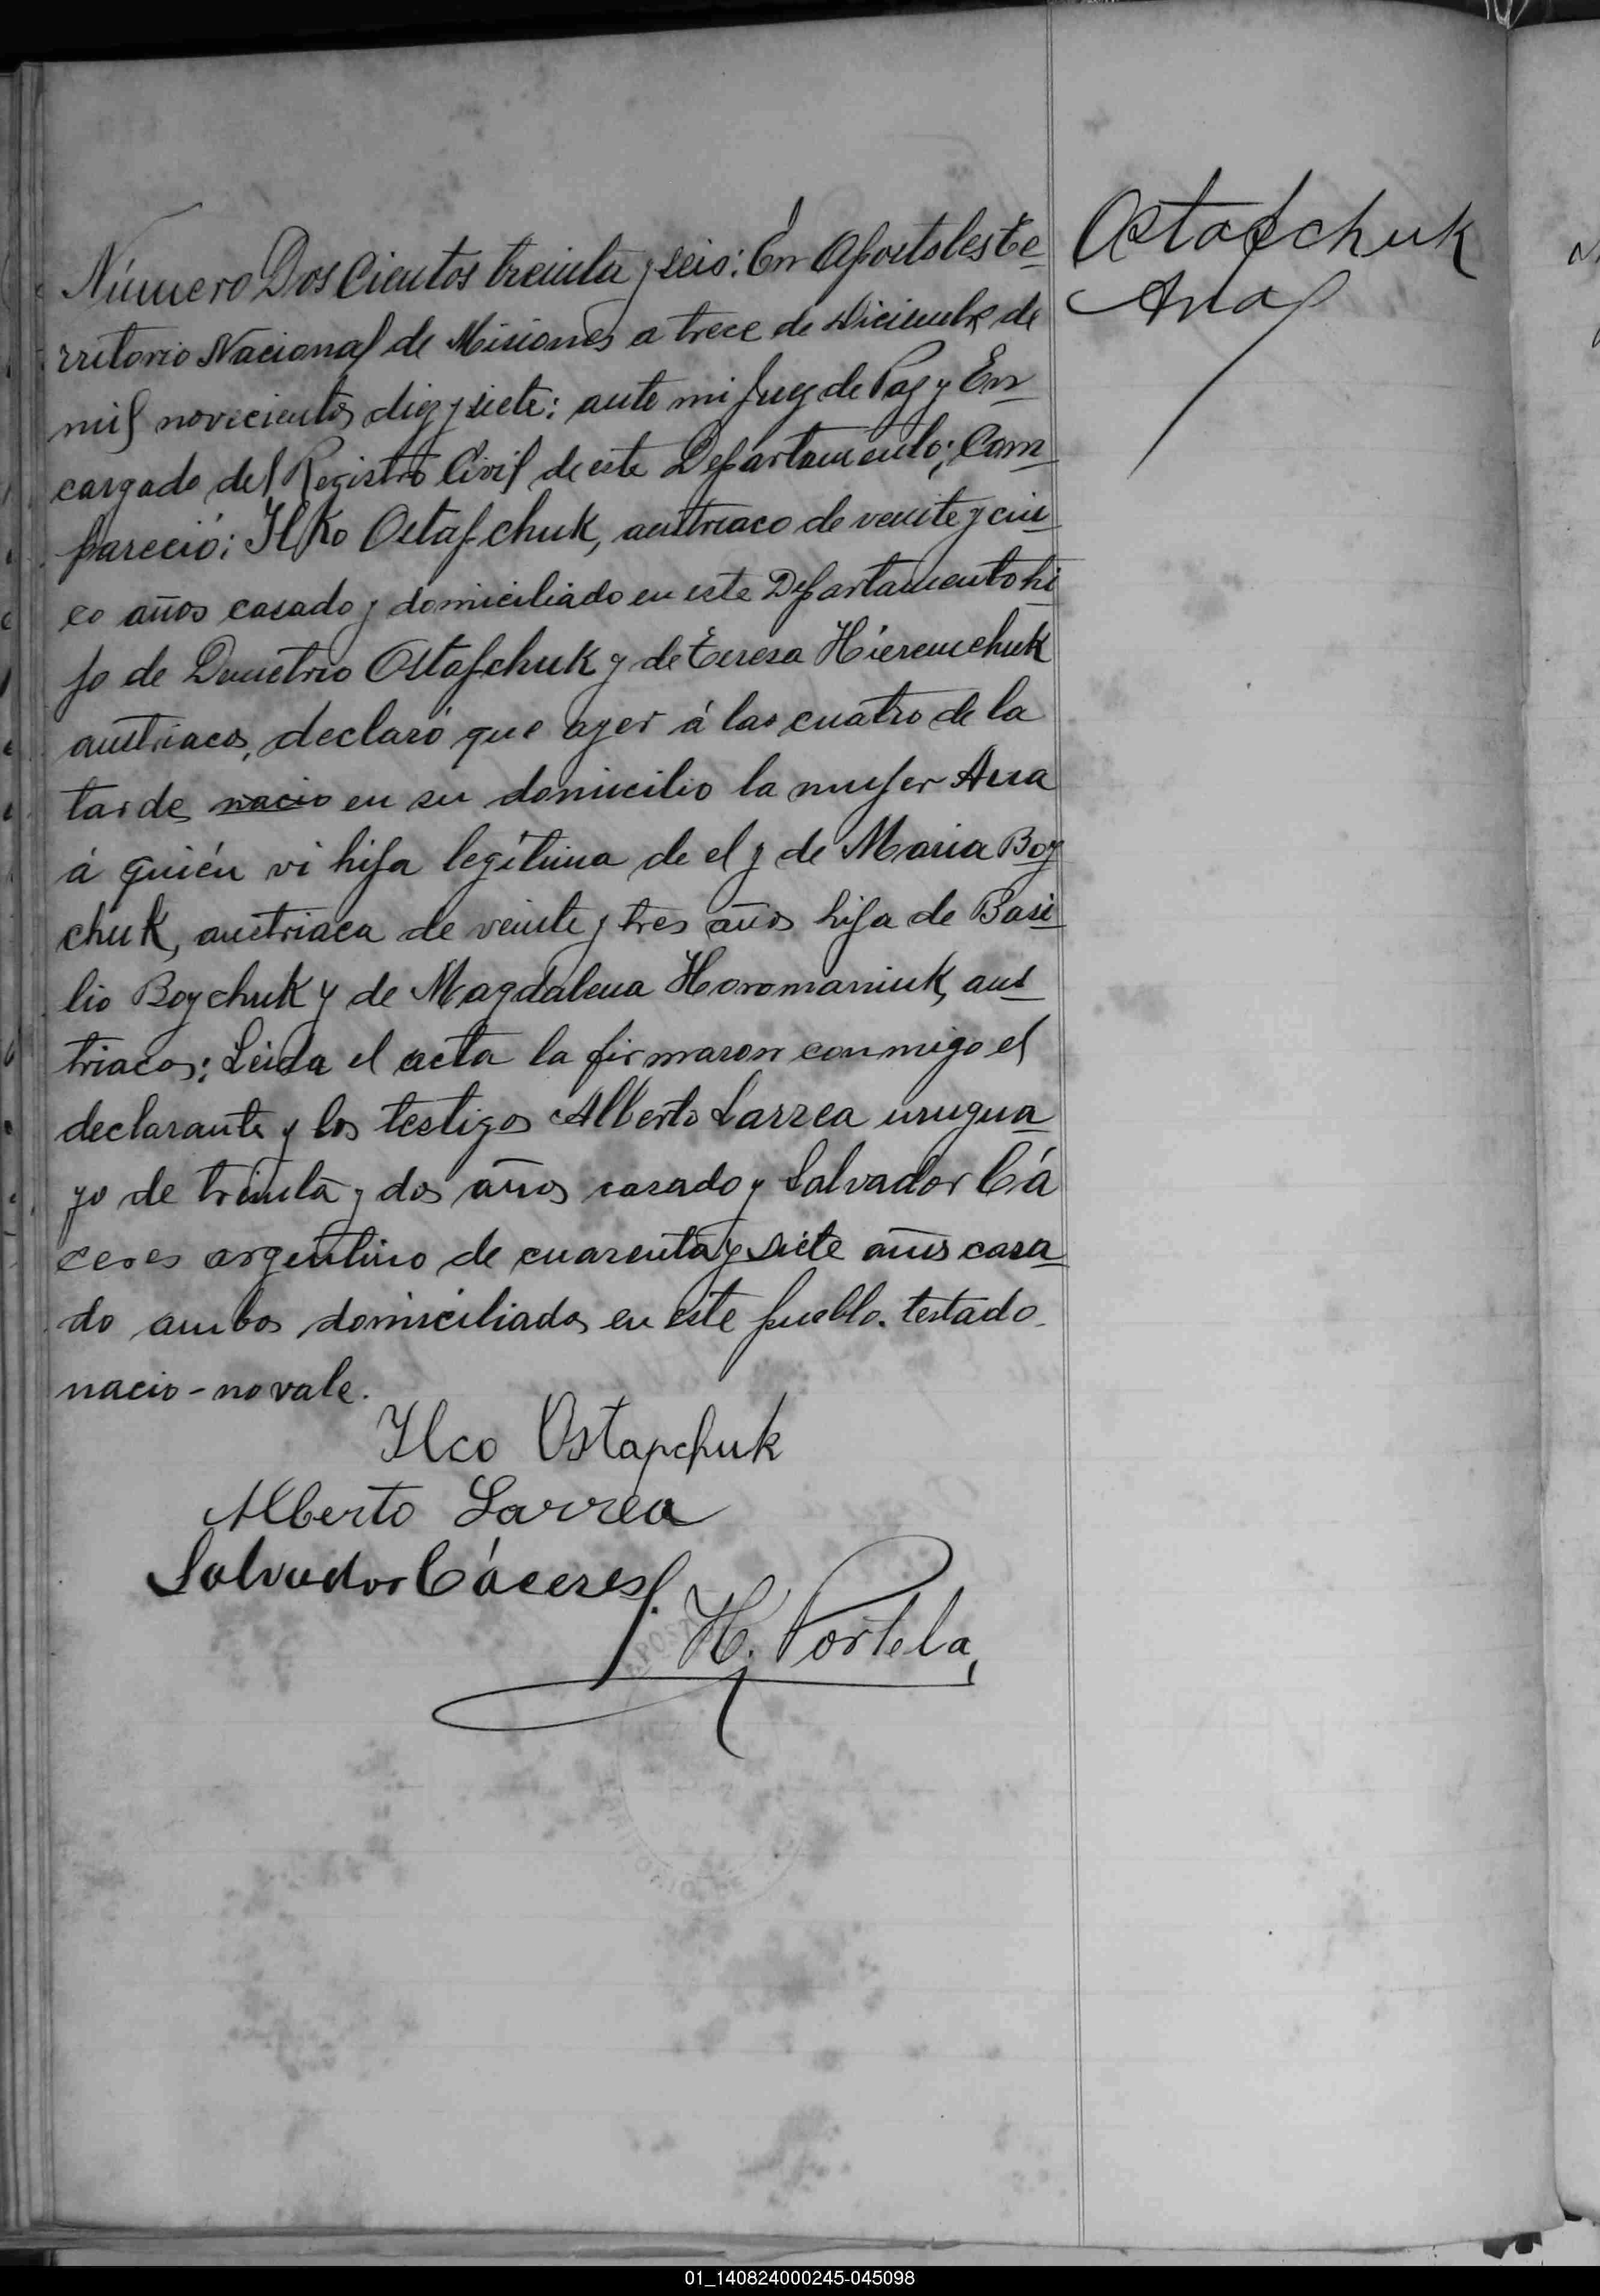 Número Dos Cientos treinta y seis: En Apostoles te-
rritorio Nacional de Misiones a trece de Diciembre de
mil novecientos diez y siete: ante mi Juez de Paz y En-
cargado del Registro Civil de este Departamento; Com-
pareció: Ilko Ostapchuk, austriaco de veinte y cin-
co años casado y domiciliado en este Departamento hi-
jo de Demetrio Ostapchuk y de Teresa Hieremchuk
austriacos, declaró que ayer á las cuatro de la
tarde nacio en su domicilio la mujer Ana
á quién vi hija legítima de el y de Maria Boy-
chuk, austriaca de veinte y tres años hija de Basi-
lio Boychuk y de Magdalena Horomaniuk, aus-
triacos: Leida el acta la firmaron conmigo el
declarante y los testigos Alberto Larrea urugua-
yo de treinta y dos años casado y Salvador Cá
ceres argentino de cuarenta y siete años casa-
do ambos domiciliados en este pueblo. testado-
nacio - no vale.
Ilco Ostapchuk
Alberto Larrea
Salvador Cáceres
H. Portela
Ostapchuk
Ana
01_140824000245-045098